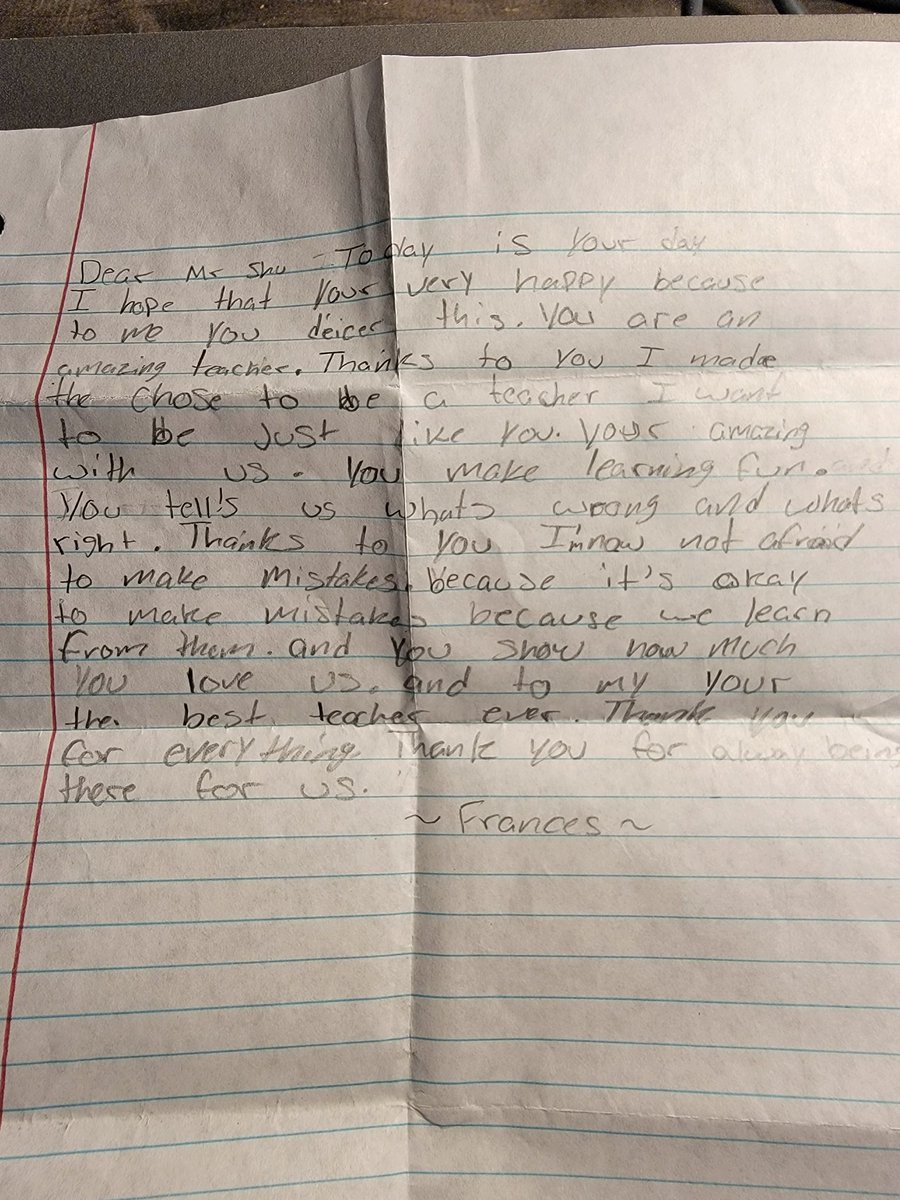 Dear Mr Shu - Today is your day
I hope that your very happy because
to me you deicer this. You are an
amazing teacher. Thanks to you I made
the chose to be a teacher I want
to be just like you. your amazing
with us. you make learning fun. and
you tell's us whats wrong and whats
right. Thanks to you I'm now not afraid
to make mistakes. because it's okay
to make mistakes because we learn
from them. and you show how much
you love us. and to my your
the best teacher ever. Thank you
for everything. Thank you for alway being
there for us.
~ Frances ~